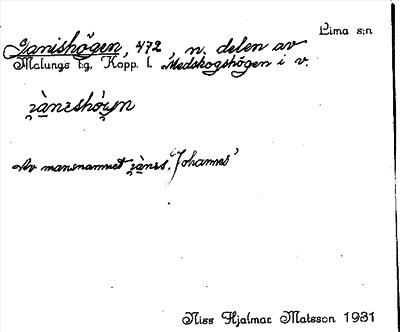 Lima s:n
Janishögen, 472, n. delen av
Malungs tg, Kopp. l. Medskogshögen i v.
Av mansnamnet 'Johannes'
Niss Hjalmar Matsson 1931